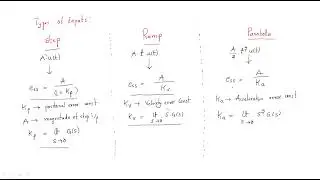 Types of Inputs:
Step
A·u(t)
ess = A / (1 + Kp)
Kp → positional error const
A → magnitude of step i/p
Kp = lt S→0 G(S)
Ramp
A·t u(t)
ess = A / Kv
Kv → Velocity error Const
Kv = lt S→0 S·G(S)
Parabola
A/2 t² u(t)
ess = A / Ka
Ka → Acceleration error const
Ka = lt S→0 S² G(S)